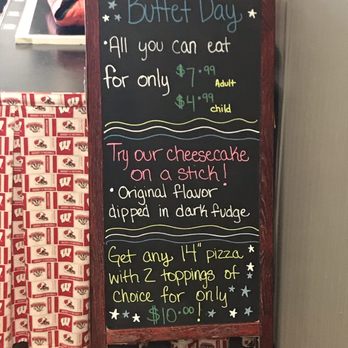 Buffet Day
•All you can eat
for only $7.99 Adult
$4.99 child
Try our cheesecake
on a stick!
• Original flavor
dipped in dark fudge
Get any 14" pizza
with 2 toppings of
choice for only
$10.00!
W